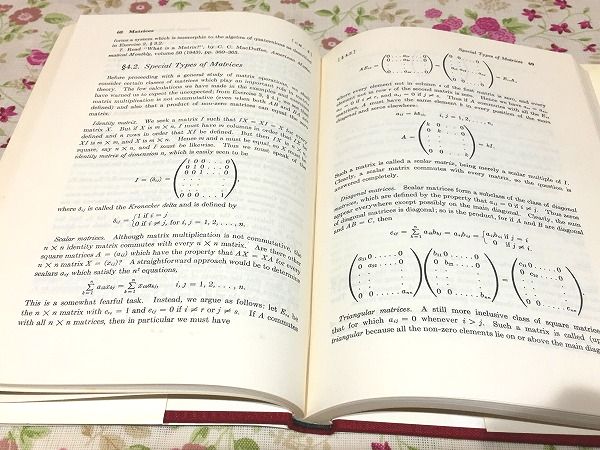 68 Matrices
forms a system which is isomorphic to the algebra of quaternions as
in Exercise 9, § 3.2.
7. Read "What is a Matrix?", by C. C. MacDuffee, American
matical Monthly, volume 50 (1943), pp. 360–365.
§4.2. Special Types of Matrices
Before proceeding with a general study of matrix operations, we
consider certain classes of matrices which play an important role in
theory. The few calculations we have made in the examples and exercises
have warned us to expect the unexpected; from Exercise
matrix multiplication is not commutative (even when both AB and BA
defined) and also that a product of non-zero matrices can equal the
matrix.
Identity matrix. We seek a matrix I such that IX = XI = X for every
matrix X. But if X is m × n, I must have m columns in order that IX be
defined and n rows in order that XI be defined. But then IX and
XI is m × n, and X is m × n. Hence m and n must be equal, so X must be
square, say n × n, and I must be likewise. Thus we must speak of the
identity matrix of dimension n, which is easily seen to be
I = (δij) =
1 0 0 . . . 0
0 1 0 . . . 0
0 0 1 . . . 0
0 0 0 . . . 1
where δij is called the Kronecker delta and is defined by
δij = {1 if i = j
0 if i ≠ j, for i, j = 1, 2, . . . , n.
Scalar matrices. Although matrix multiplication is not commutative, the
n × n identity matrix commutes with every n × n matrix. Are there other
square matrices A = (aij) which have the property that AX = XA for every
n × n matrix X = (xij)? A straightforward approach would be to determine
scalars aij which satisfy the n² equations,
n∑k=1 aikxkj = n∑k=1 xikakj, i, j = 1, 2, . . . , n.
This is a somewhat fearful task. Instead, we argue as follows: let Ers be
the n × n matrix with ers = 1 and eij = 0 if i ≠ r or j ≠ s. If A commutes
with all n × n matrices, then in particular we must have
[§4.2] Special Types of Matrices 69
AErs = = ErsA.
Thus every element not in column s of the first matrix is zero, and every
element not in row r of the second matrix is zero. Hence we have
and aij = 0 if
matrix, A must have the same element k in every position of the main
diagonal and zeros elsewhere:
aij = kδij, i, j = 1, 2, . . . , n,
A = = kI.
Such a matrix is called a scalar matrix, being merely a scalar multiple of I.
Clearly, a scalar matrix commutes with every matrix, so the question is
answered completely.
Diagonal matrices. Scalar matrices form a subclass of the class of diagonal
matrices, which are defined by the property that aij = 0 if i ≠ j. Thus zeros
appear everywhere except possibly on the main diagonal. Clearly, the sum
of diagonal matrices is diagonal; so is the product, for if A and B are diagonal
and AB = C, then
cij = n∑k=1 aikbkj = aiibij = {aiibii if j = i
0 if j ≠ i,
a11 0 . . . . . 0
0 a22 . . . . 0
0 0 . . . . . ann
b11 0 . . . . . 0
0 b22 . . . . 0
0 0 . . . . . bnn
=
c11 0 . . . . . 0
0 c22 . . . . 0
0 0 . . . . . cnn
Triangular matrices. A still more inclusive class of square matrices
that for which aij = 0 whenever i > j. Such a matrix is called (up
triangular because all the non-zero elements lie on or above the main diag